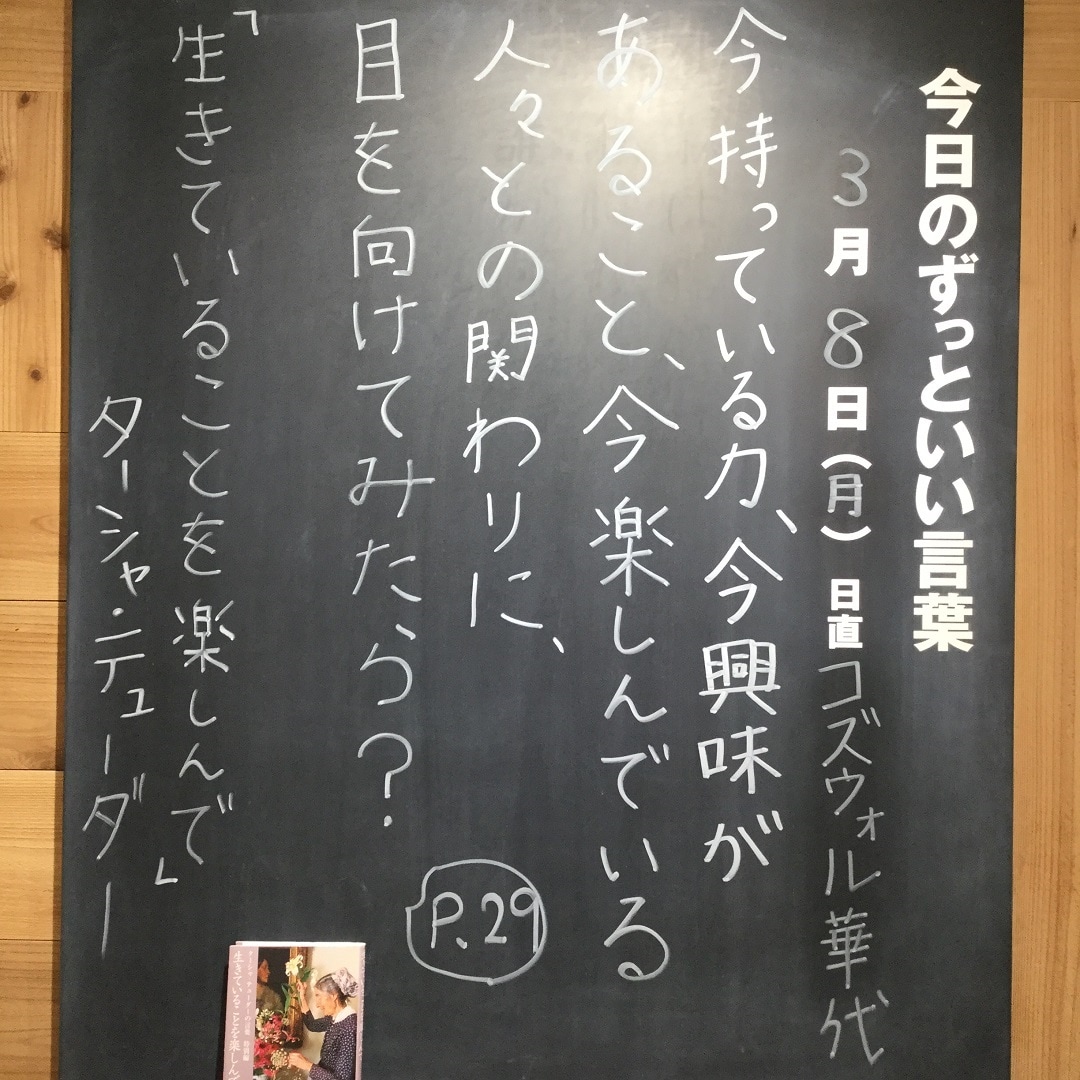 今日のずっといい言葉
3月8日(月) 日直 コズウォル華代
今持っている力、今興味が
あること、今楽しんでいる
人々との関わりに、
目を向けてみたら?
P.29
「生きていることを楽しんで」
ターシャ・テューダー
ターシャ・テューダーの言葉 特別編
生きていることを楽しんで